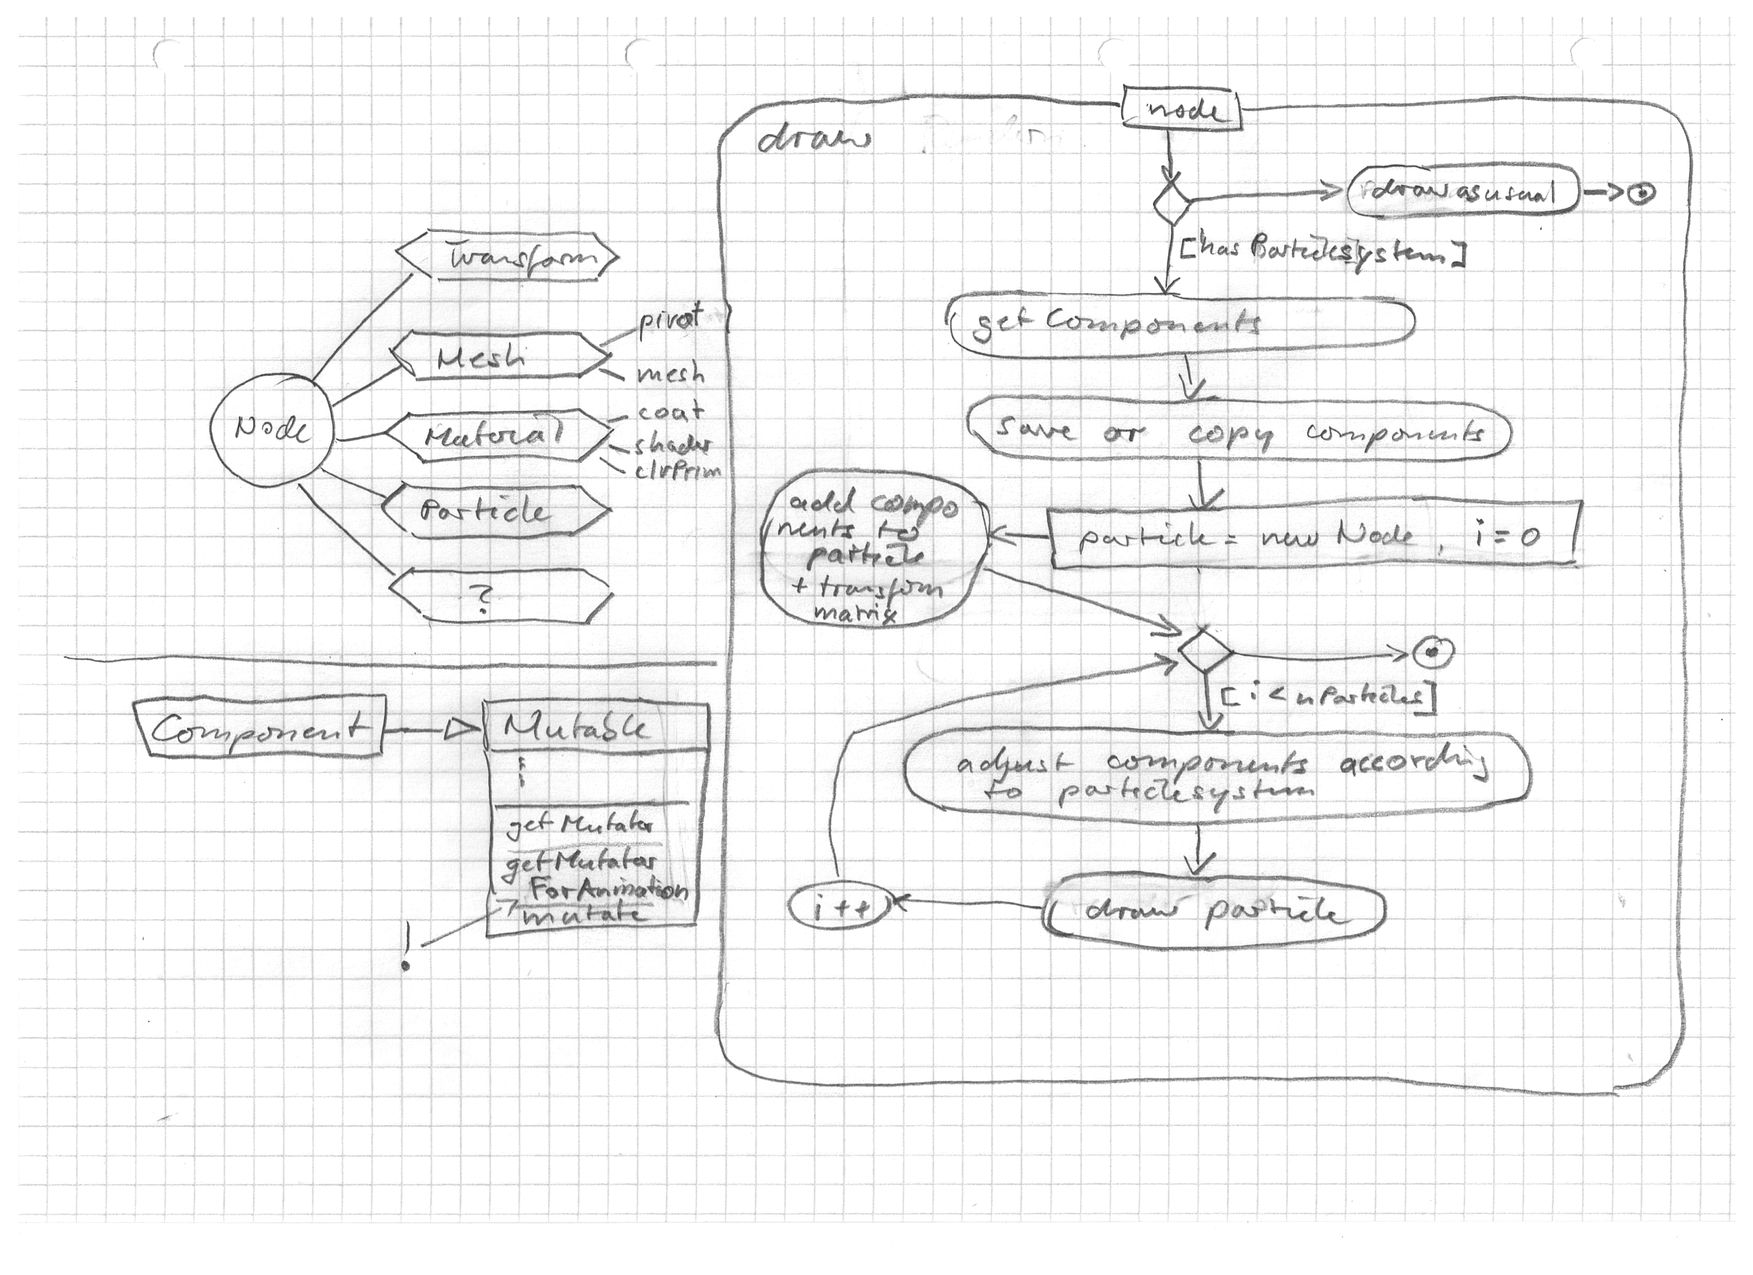 Node
Transform
Mesh
pivot
mesh
Material
coat
shader
clrPrim
Particle
?
Component
Mutable
getMutator
getMutator
ForAnimation
mutate
!
draw
node
draw as usual
[has Particlesystem]
get Components
save or copy components
particle = new Node, i=0
add compo
nents to
particle
+ transform
matrix
[i < nParticles]
adjust components according
to particlesystem
draw particle
i++